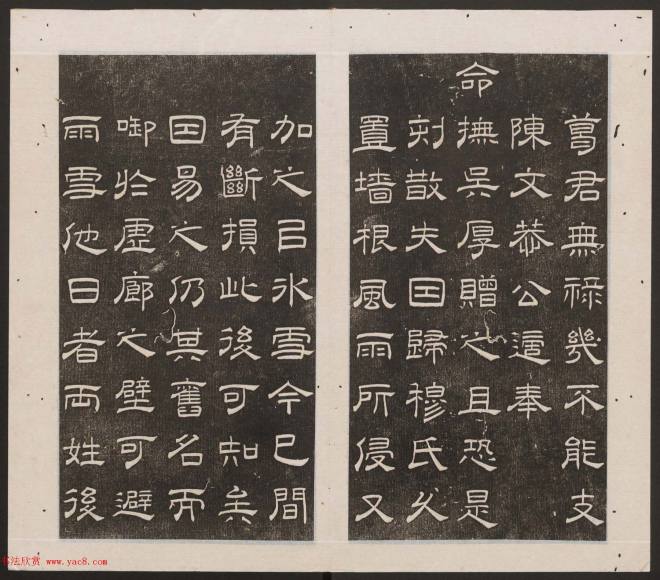 葛君無祿幾不能支
陳文恭公適奉
命撫吳厚贈之且恐是
刻散失因歸穆氏久
置墻根風雨所侵又
加之以冰雪今已間
有斷損此後可知矣
因易之仍其舊名而
啣於虛廊之壁可避
雨雪他日者兩姓後
书法欣赏 www.yac8.com